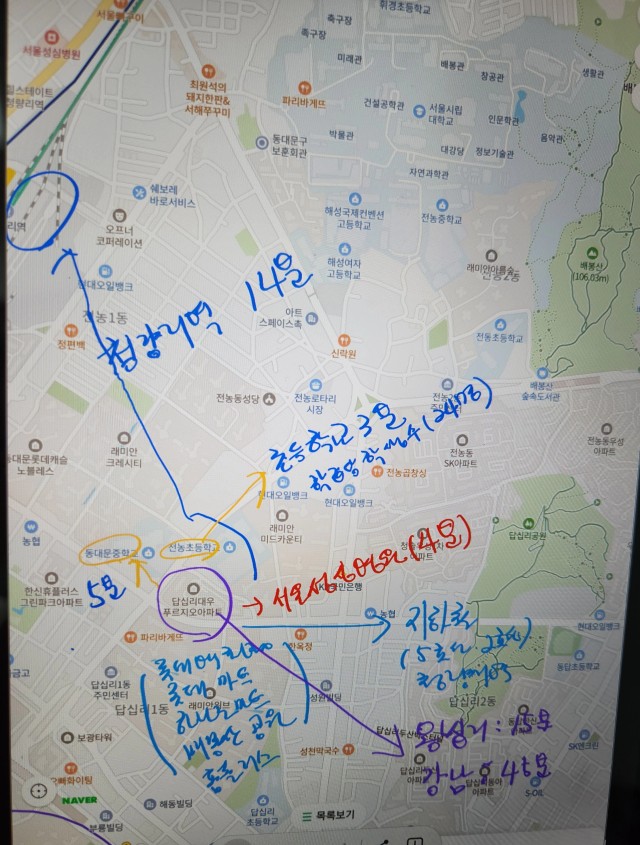 서울뼈구이
서울성심병원
힐스테이트
청량리역
최원석의
돼지한판&
서해쭈꾸미
파리바게뜨
휘경초등학교
축구장
족구장
미래관
배봉관
창공관
생활관
건설공학관
서울시립
대학교
인문학관
음악관
박물관
대강당
정보기술관
자연과학관
동대문구
보훈회관
쉐보레
바로서비스
오프너
코퍼레이션
리역
현대오일뱅크
전농1동
정편백
해성국제컨벤션
고등학교
전농중학교
해성여자
고등학교
래미안아름숲
전농2동
배봉산
(106.03m)
청량리역 14분
아트
스페이스촉
신락원
전농초등학교
전농동성당
전농로타리
시장
배봉산
숲속도서관
초등학교 3분
래미안
크레시티
동대문롯데캐슬
노블레스
전농곱창싱
전농동
SK아파트
전농동우성
아파트
현대오일뱅크
현대오일뱅크
래미안
미드카운티
답십리공원
농협
동대문중학교
전농초등학교
5분
한신휴플러스
그린파크아파트
답십리대우
푸르지오아파트
→ 서울성심병원 (4분)
농협
지하철
(5호선 2호선)
청량리역
현대오일뱅크
파리바게뜨
한옥정
롯데백화점
롯데마트
하나로마트
배봉산 공원
홈플러스
답십리1동
주민센터
답십리1동
래미안위브
성원빌딩
답십리2동
동답초등학교
왕십리 : 15분
강남 : 45분
보광타워
성천막국수
SK엔크린
S-OIL
오빠화이팅
NAVER
해동빌딩
부름빌딩
답십리
초등학교
목록보기